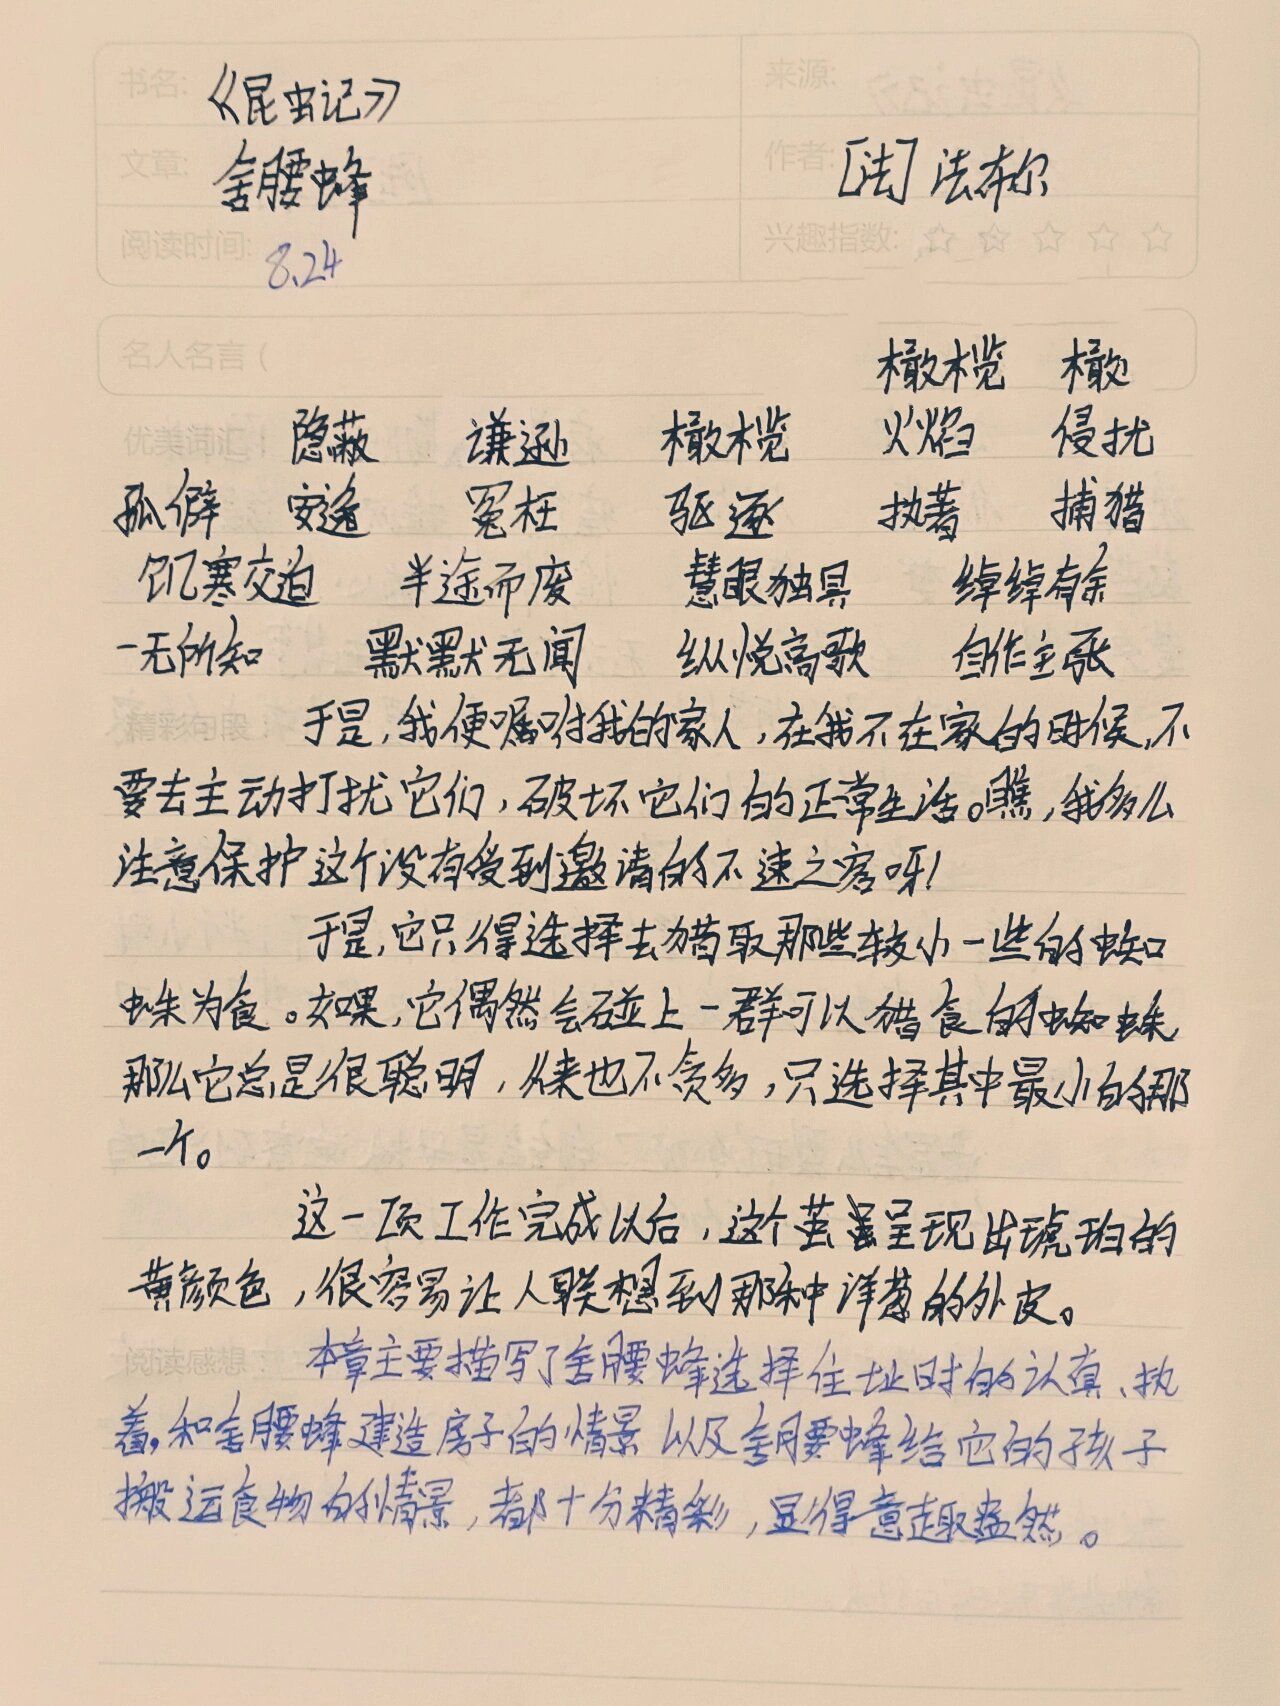 书名: 《昆虫记》 来源:
文章: 舍腰蜂 作者: [法] 法布尔
阅读时间: 8.24 兴趣指数: ☆ ☆ ☆ ☆ ☆
名人名言(
橄榄 橄
优美词汇: 隐蔽 谦逊 橄榄 火焰 侵扰
孤僻 安逸 冤枉 驱逐 执著 捕猎
饥寒交迫 半途而废 慧眼独具 绰绰有余
一无所知 默默无闻 纵悦高歌 自作主张
精彩句段: 于是,我便嘱咐我的家人,在我不在家的时候,不
要去主动打扰它们,破坏它们的正常生活。瞧,我多么
注意保护这个没有受到邀请的不速之客呀!
于是,它只得选择去猎取那些较小一些的蜘
蛛为食。如果,它偶然会碰上一群可以猎食的蜘蛛,
那么它总是很聪明,从来也不贪多,只选择其中最小的那
一个。
这一项工作完成以后,这个茧虽呈现出琥珀的
黄颜色,很容易让人联想到那种洋葱的外皮。
阅读感想: 本章主要描写了舍腰蜂选择住址时的认真、执
着,和舍腰蜂建造房子的情景以及舍腰蜂给它的孩子
搬运食物的情景,都十分精彩,显得意趣盎然。